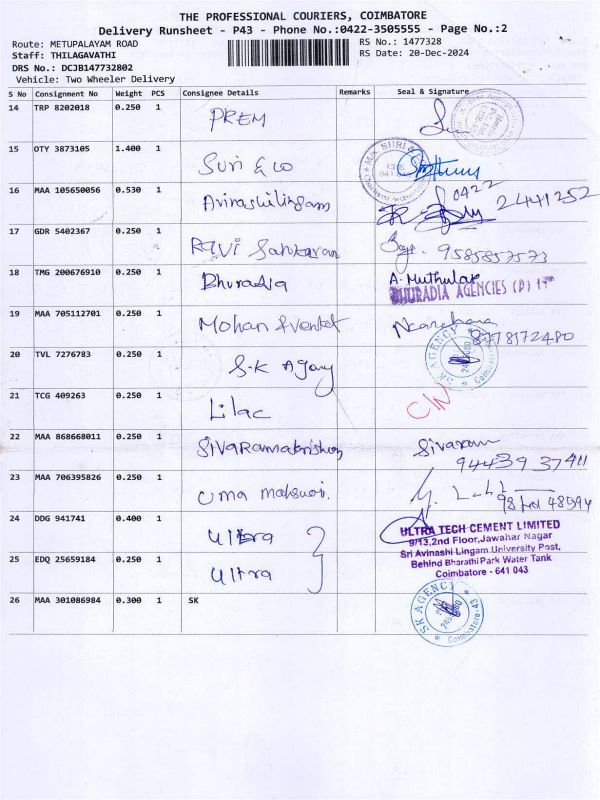 THE PROFESSIONAL COURIERS, COIMBATORE
Delivery Runsheet - P43 - Phone No.:0422-3505555 - Page No.:2
Route: METUPALAYAM ROAD
Staff: THILAGAVATHI
DRS No.: DCJB147732802
Vehicle: Two Wheeler Delivery
RS No.: 1477328
RS Date: 20-Dec-2024
S No Consignment No Weight PCS Consignee Details Remarks Seal & Signature
14 TRP 8202018 0.250 1 PREM
15 OTY 3873105 1.400 1 Suri & co
16 MAA 105650056 0.530 1 Avinashilingam 0422 2441252
17 GDR 5402367 0.250 1 Ravi Sankaran 9585857573
18 TMG 200676910 0.250 1 Bhuradia A. Muthulak
BHURADIA AGENCIES (P)
19 MAA 705112701 0.250 1 Mohan & venket 8778172480
20 TVL 7276783 0.250 1 S.K Agency SK AGENCY
21 TCG 409263 0.250 1 Lilac
22 MAA 868668011 0.250 1 Sivaramakrishnan Sivaram
94439 37411
23 MAA 706395826 0.250 1 Uma maheswari.
24 DDG 941741 0.400 1 Ultra
25 EDQ 25659184 0.250 1 Ultra
ULTRA TECH CEMENT LIMITED
9/13,2nd Floor,Jawahar Nagar
Sri Avinashi Lingam University Post,
Behind Bharathi Park Water Tank
Coimbatore - 641 043
26 MAA 301086984 0.300 1 SK SK AGENCY Coimbatore-43